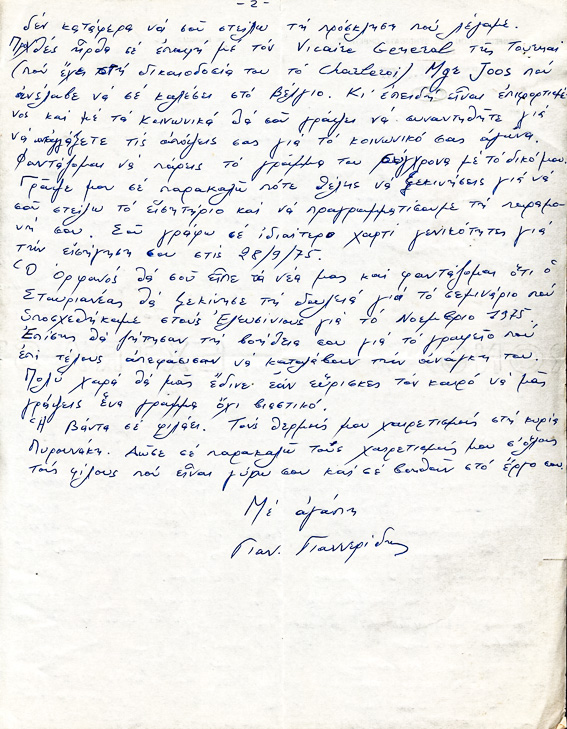 -2-
δέν κατάφερα νά σοῦ στείλω τή πρόσκληση πού λέγαμε.
Προχθές ἦρθα σέ ἐπαφή μέ τόν Vicaire General τῆς Tournai
(πού ἔχει στή δικαιοδοσία του τό Charleroi) Mgr Joos πού
ἀνέλαβε νά σέ καλέσει στό Βέλγιο. Κι' ἐπειδή εἶναι ἐπιφορτισμέ
νος καί μέ τά κοινωνικά θά σοῦ γράψει νά συναντηθῆτε γιά
νά ἀλλάξετε τίς ἀπόψεις σας γιά τό κοινωνικό σας ἀγῶνα.
Φαντάζομαι νά πάρεις τό γράμμα του σύγχρονα μέ τό δικό μου.
Γράψε μου σέ παρακαλῶ πότε θέλης νά ξεκινήσεις γιά νά
σοῦ στείλω τό εἰσητήριο καί νά προγραμματίσουμε τή παραμο
νή σου. Σοῦ γράφω σέ ἰδιαίτερο χαρτί γενικότητες γιά
τήν εἰσήγηση σου στίς 28/9/75.
Ὁ Ορφανός θά σοῦ εἶπε τά νέα μας καί φαντάζομαι ὅτι ὁ
Σταυριανέας θά ξεκίνησε τή δουλειά γιά τό σεμινάριο πού
ὑποσχεθήκαμε στούς Ἐλευσίνιους γιά τό Νοέμβριο 1975
Ἐπίσης θά ζήτησαν τή βοήθεια σου γιά τό γραφεῖο πού
ἐπί τέλους ἀπεφάσισαν νά καταλάβουν τήν ἀνάγκη του.
Πολύ χαρά θά μᾶς ἔδινε ἐάν εὕρισκες τόν καιρό νά μᾶς
γράψεις ἕνα γράμμα ὄχι βιαστικό.
Ἡ Βάντα σέ φιλάει. Τούς θερμούς μου χαιρετισμούς στή κυρία
Πυρουνάκη. Δῶσε σέ παρακαλῶ τούς χαιρετισμούς μου σ' ὅλους
τούς φίλους πού εἶναι γύρω σου καί σέ βοηθᾶν στό ἔργο σου.
Μέ ἀγάπη
Γιαν. Γιαννερίδης